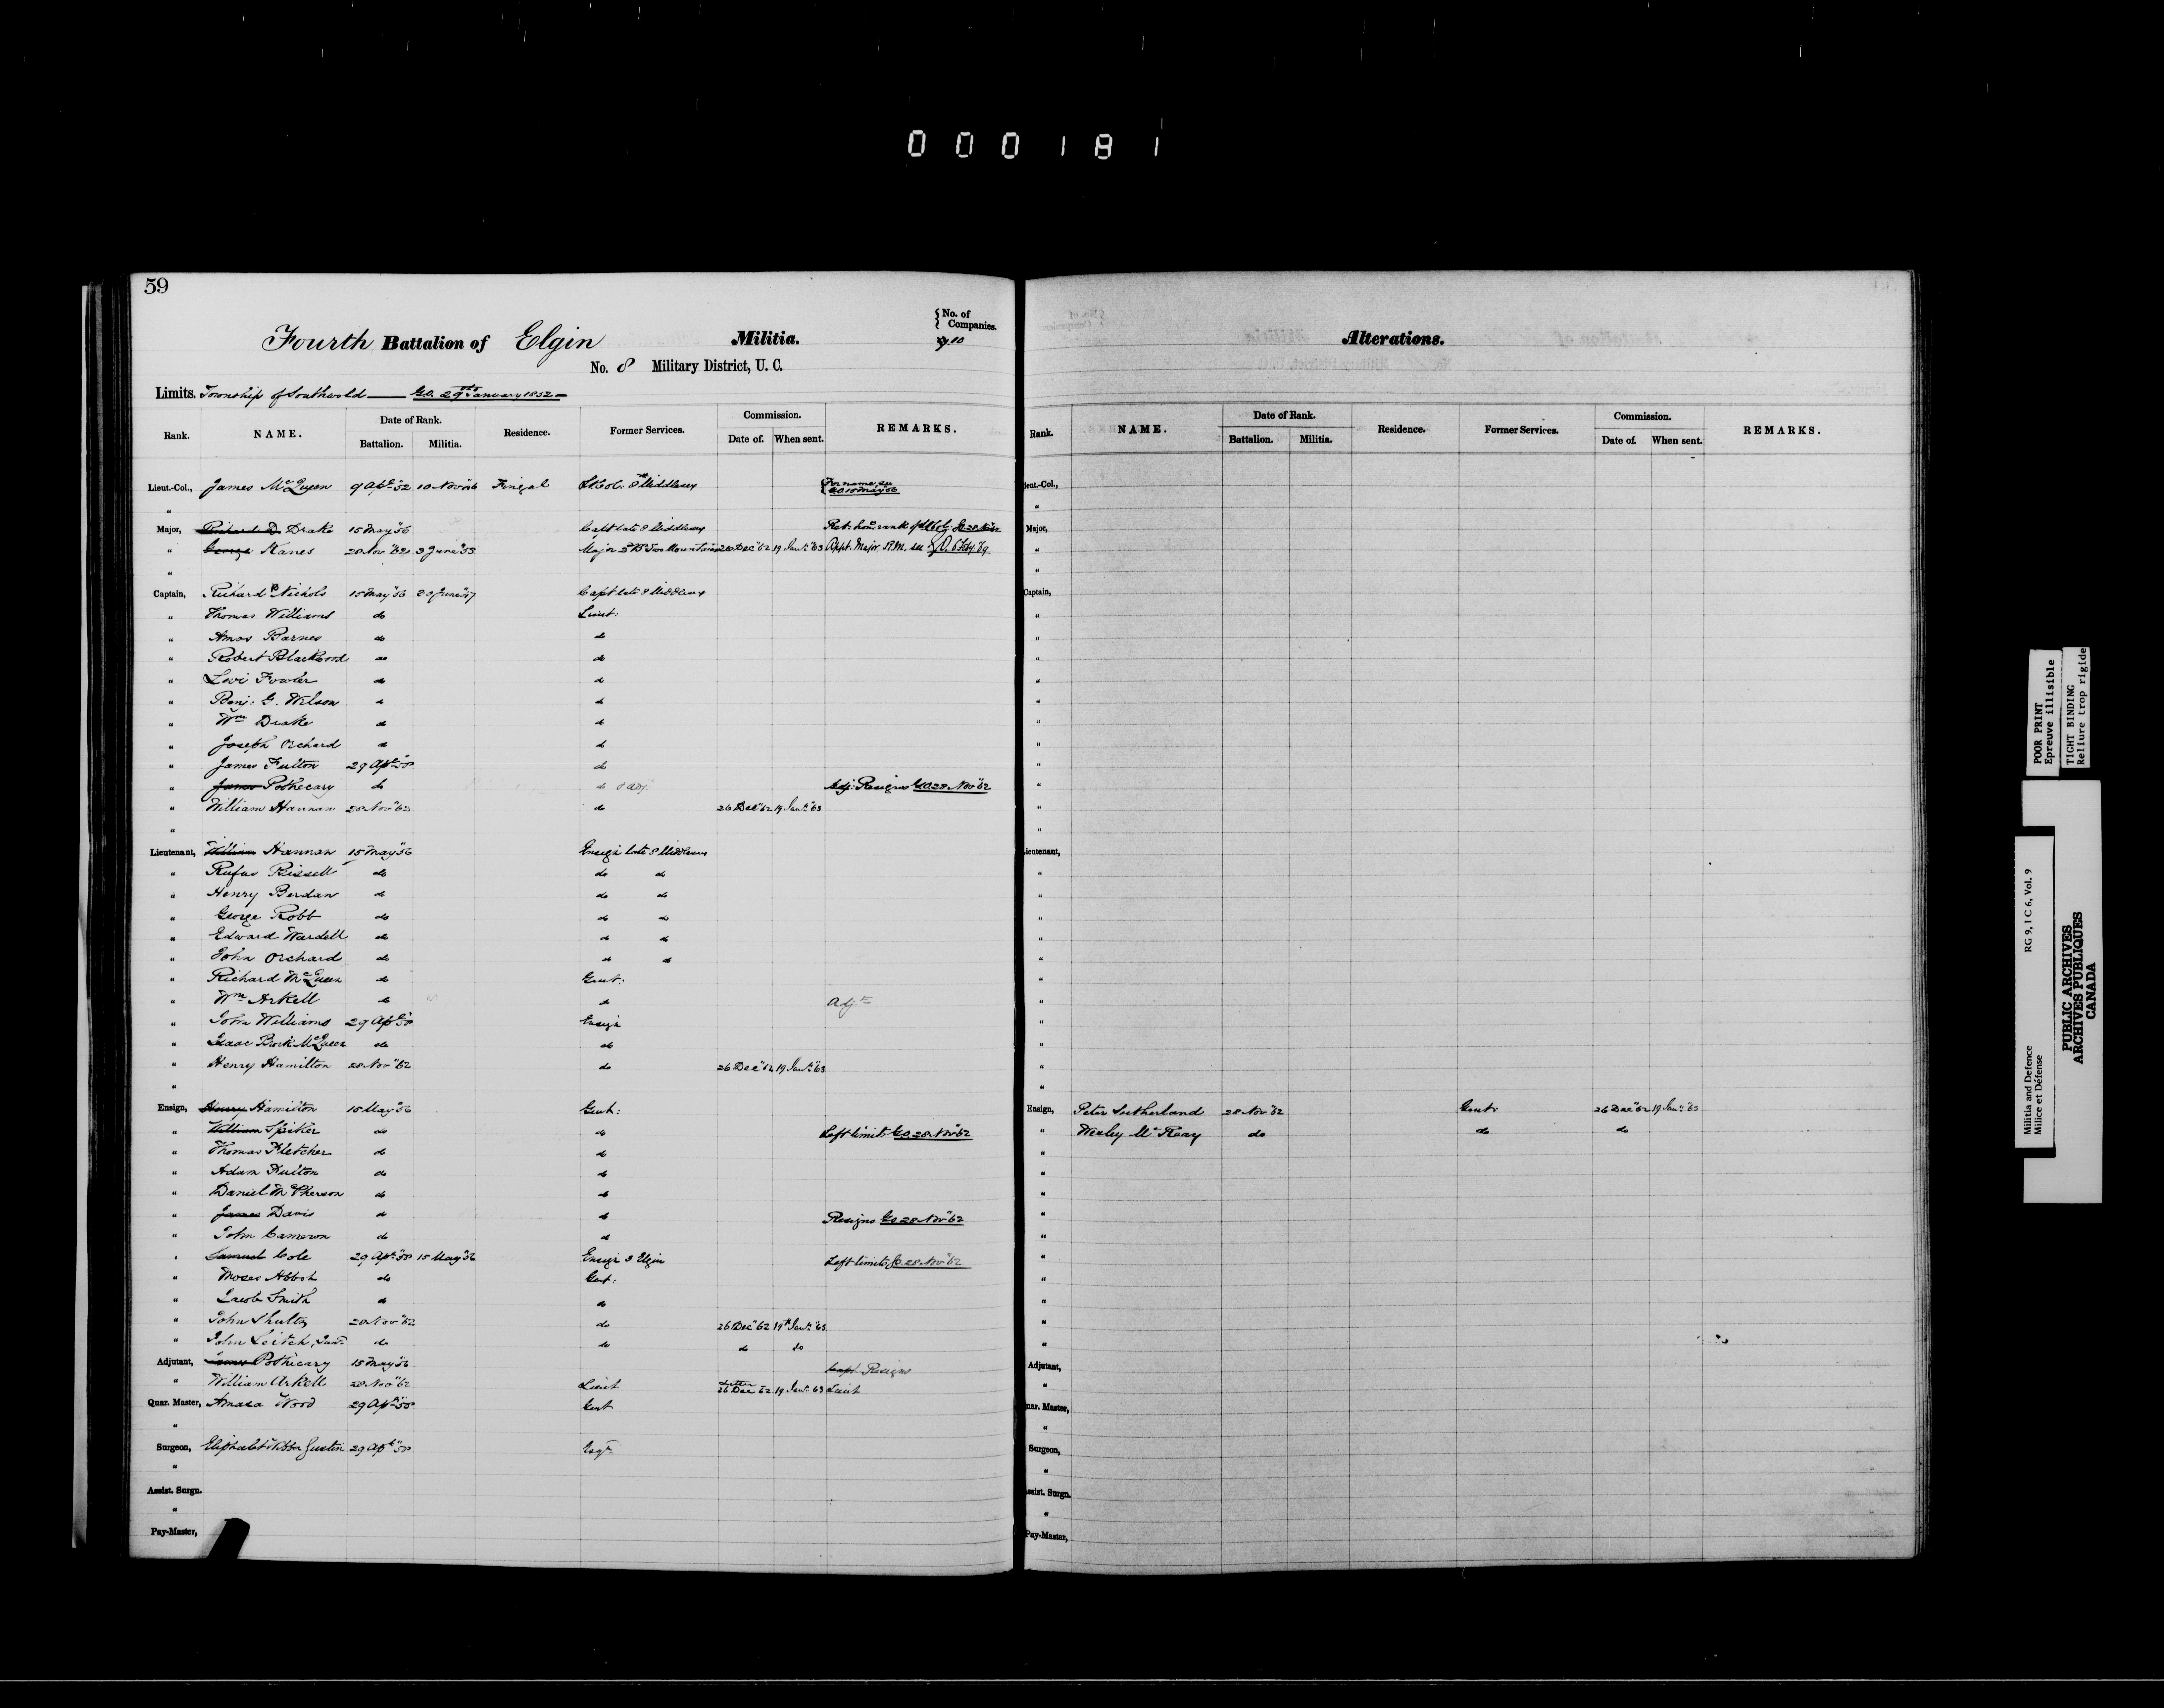 000181
59
{No. of Companies.
10
Fourth Battalion of Elgin Militia.
No. 8 Military District, U. C.
Limits. Township of Southwold — G.O. 29th January 1852 —
Rank. NAME. Date of Rank. Battalion. Militia. Residence. Former Services. Commission. Date of. When sent. REMARKS.
Lieut.-Col., James McQueen 9 Apl "52 10 Nov "46 Fingal Lt Col: 8th Middlesex
"
Major, Richard D. Drake 15 May "56 Capt late 8 Middlesex Ret: hon: rank of Lt Col: GO 28 Nov "62
" George Kanes 28 Nov "62 3 June "53 Major 26 Dec "62 19 Jany "63 Appt. Major
"
Captain, Richard Nichols 15 May "56 20 June Capt late 8 Middlesex
" Thomas Williams do Lieut:
" Amos Barnes do do
" Robert Blackwood do do
" Levi Fowler do do
" Benj: G. Wilson do do
" Wm Drake do do
" Joseph Orchard do do
" James Fulton 29 Apl "58 do
" James Pothecary do do & Adj: Adj: Resigns G.O. 28 Nov "62
" William Hannan 28 Nov "62 do 26 Dec "62 19 Jany "63
"
Lieutenant, William Hannan 15 May "56 Ensign late 8 Middlesex
" Rufus Bissell do do do
" Henry Berdan do do do
" George Robb do do do
" Edward Wardell do do do
" John Orchard do do do
" Richard McQueen do Gent:
" Wm Arkell do do Adjt
" John Williams 29 Apl "58 Ensign
" Isaac Brock McQueen do do
" Henry Hamilton 28 Nov "62 do 26 Dec "62 19 Jany "63
"
Ensign, Henry Hamilton 15 May "56 Gent:
" William Spiker do do Left limits G.O. 28 Nov "62
" Thomas Fletcher do do
" Adam Fulton do do
" Daniel McPherson do do
" James Davis do do Resigns G.O. 28 Nov "62
" John Cameron do do
" Samuel Cole 29 Apl "58 15 May "56 Ensign 3 Elgin Left limits G.O. 28 Nov "62
" Moses Abbott do Gent:
" Jacob Smith do do
" John Shultz 28 Nov "62 do 26 Dec "62 19th Jany "63
" John Leitch, Junr do do do do
Adjutant, James Pothecary 15 May "56 Capt. Resigns
" William Arkell 28 Nov "62 Lieut 26 Dec "62 19 Jany "63 Lieut
Quar. Master, Amasa Wood 29 Apl "58 Gent
"
Surgeon, Eliphalet Gustin 29 Apl "58 Esqr
"
Assist. Surgn.
"
Pay-Master,
Alterations.
Rank. NAME. Date of Rank. Battalion. Militia. Residence. Former Services. Commission. Date of. When sent. REMARKS.
ieut.-Col.,
"
Major,
"
"
Captain,
"
"
"
"
"
"
"
"
"
"
"
ieutenant,
"
"
"
"
"
"
"
"
"
"
"
Ensign, Peter Sutherland 28 Nov "62 Gent: 26 Dec "62 19 Jany "63
" Wesley McReay do do do
"
"
"
"
"
"
"
"
"
"
Adjutant,
"
uar. Master,
"
Surgeon,
"
ssist. Surgn.
"
Pay-Master,
POOR PRINT
Epreuve illisible
TIGHT BINDING
Reliure trop rigide
Militia and Defence RG 9, I C 6, Vol. 9
Milice et Défense
PUBLIC ARCHIVES
ARCHIVES PUBLIQUES
CANADA